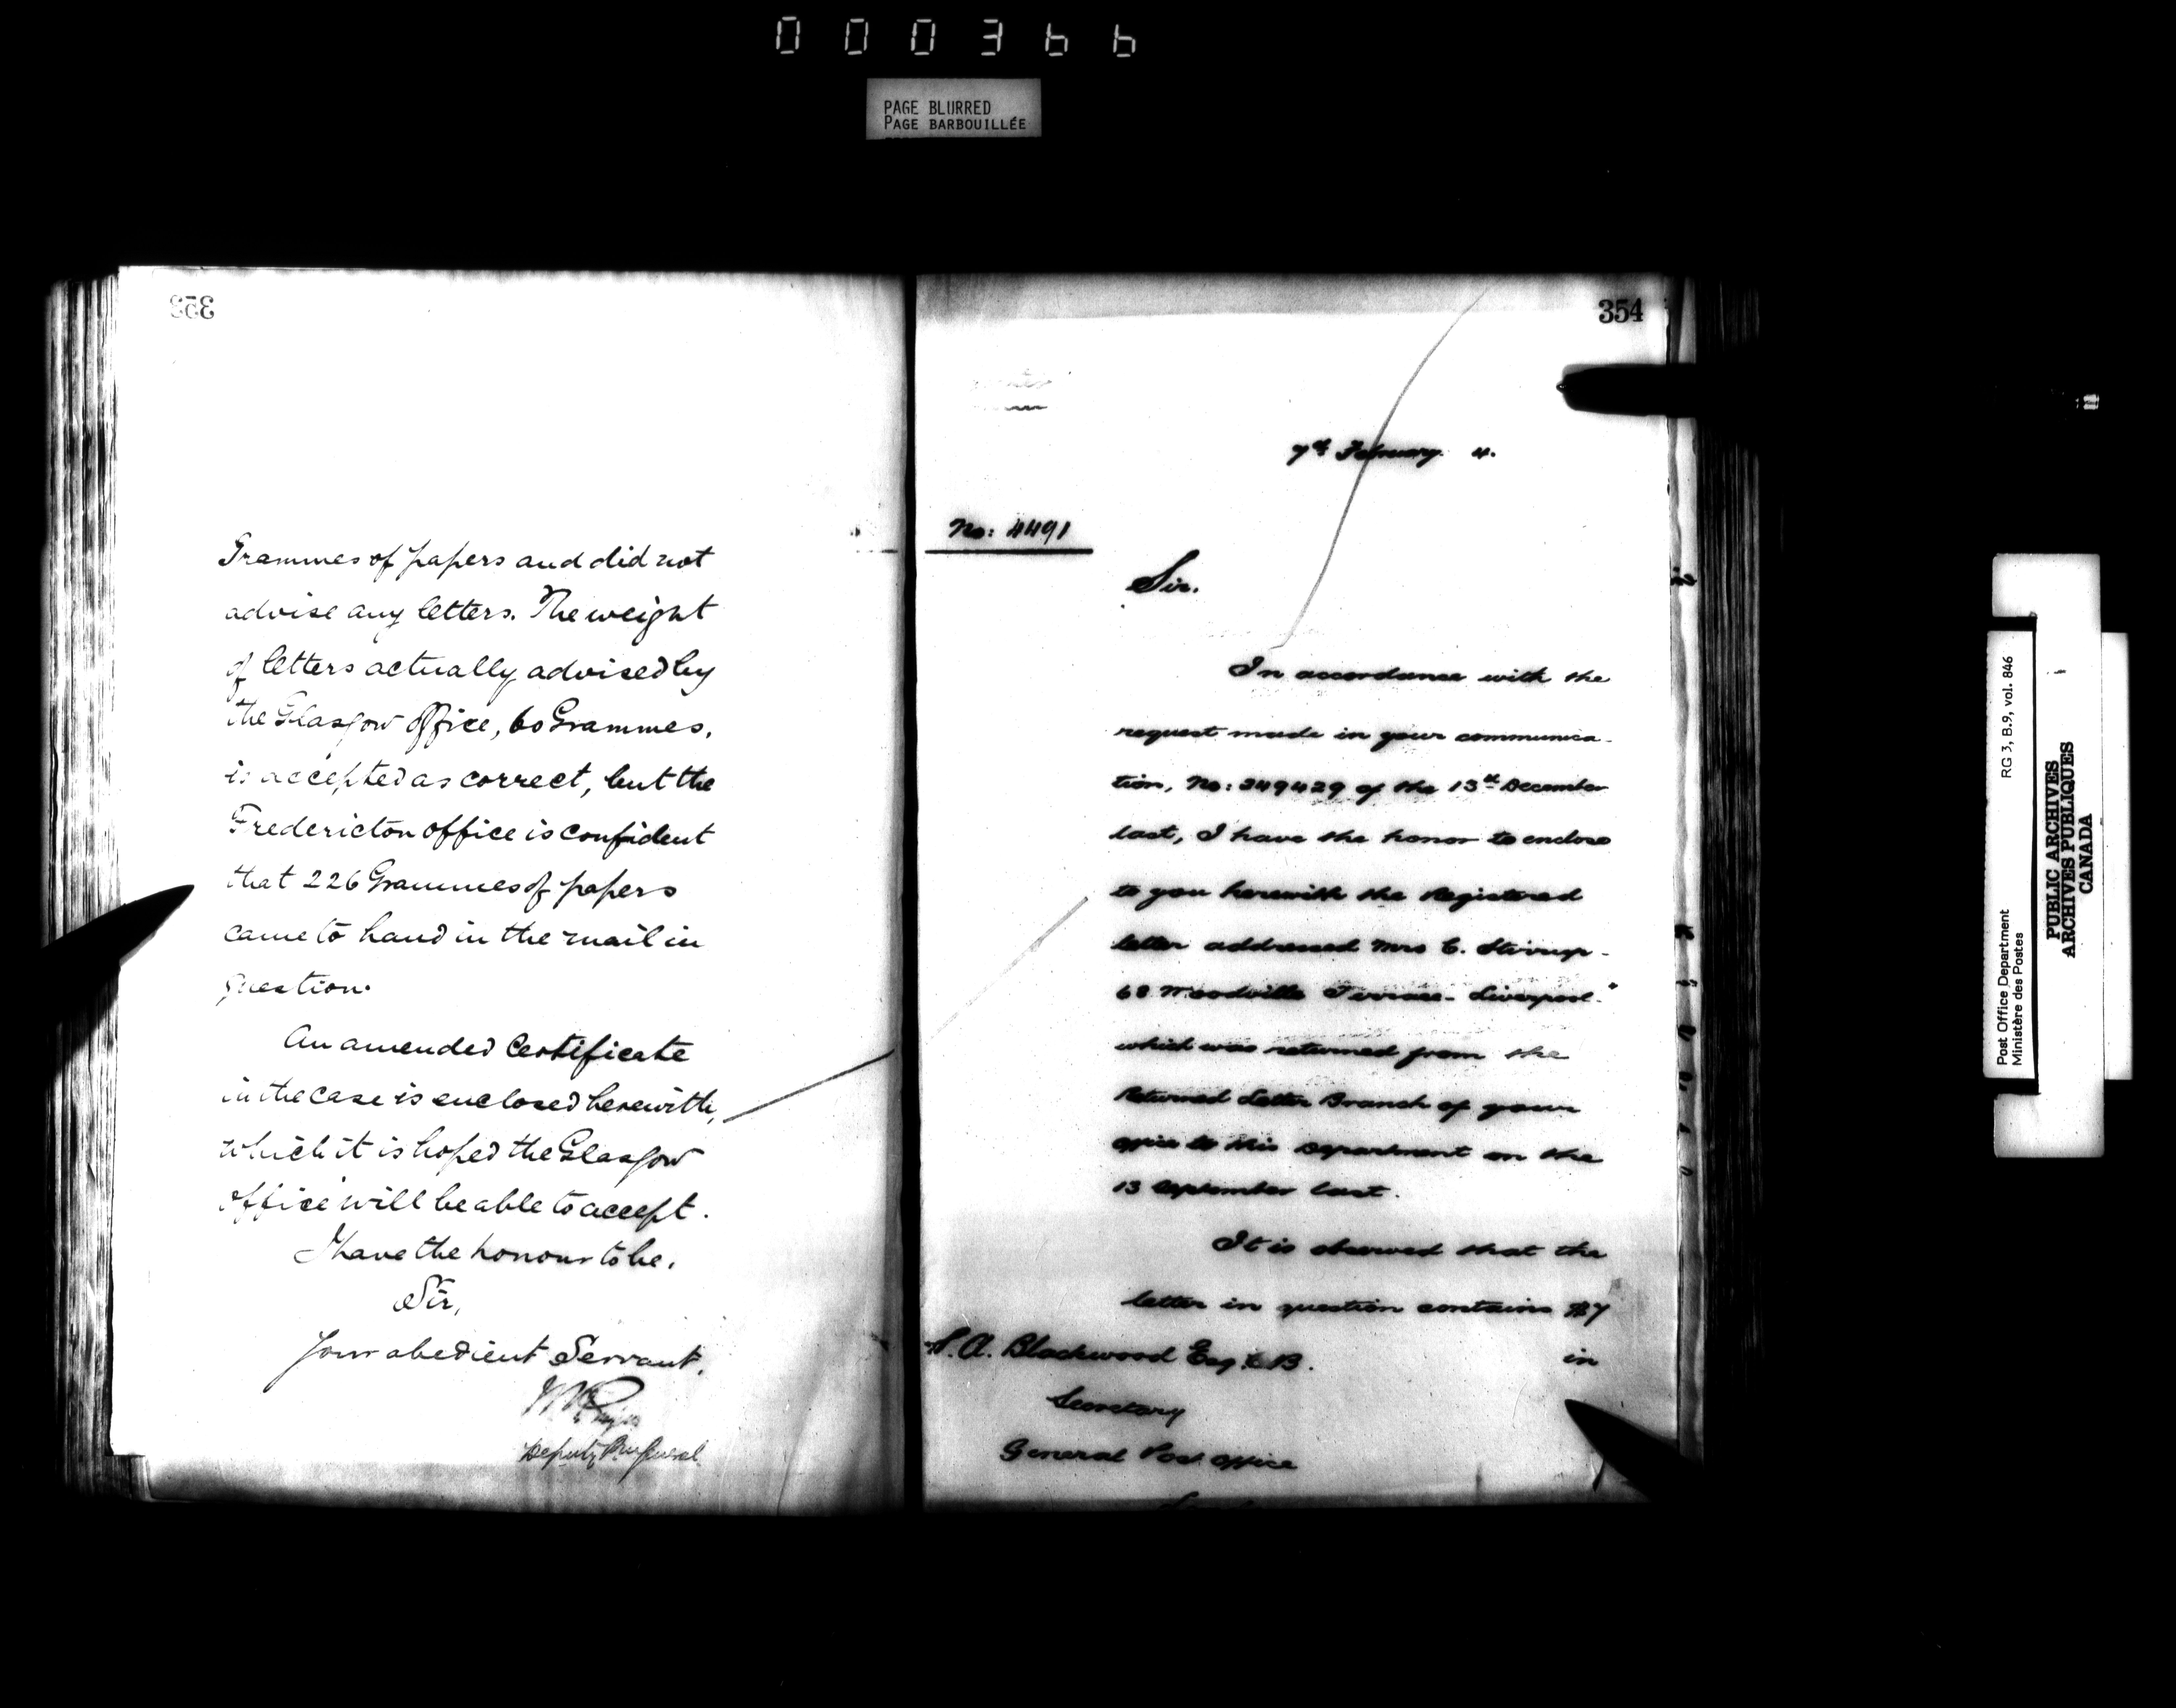 000366
PAGE BLURRED
PAGE BARBOUILLÉE
353
Grammes of papers and did not
advise any letters. The weight
of letters actually advised by
the Glasgow Office, 60 Grammes,
is accepted as correct, but the
Fredericton office is confident
that 226 Grammes of papers
came to hand in the mail in
question.
An amended Certificate
in the case is enclosed herewith,
which it is hoped the Glasgow
office will be able to accept.
I have the honour to be,
Sir,
Your obedient Servant,
Deputy
354
7th February 4.
No: 4491
Sir.
In accordance with the
request made in your communica-
tion, No: 349429 of the 13th December
last, I have the honor to enclose
to you herewith the Registered
letter addressed Mrs C. Stirrup -
68 Woodville Terrace - Liverpool"
which was returned from the
Returned Letter Branch of your
office to this Department on the
13 September last.
It is observed that the
letter in question contains $7
in
S. A. Blackwood Esq. C.B.
Secretary
General Post Office
Post Office Department
Ministère des Postes
RG 3, B.9, vol. 846
PUBLIC ARCHIVES
ARCHIVES PUBLIQUES
CANADA